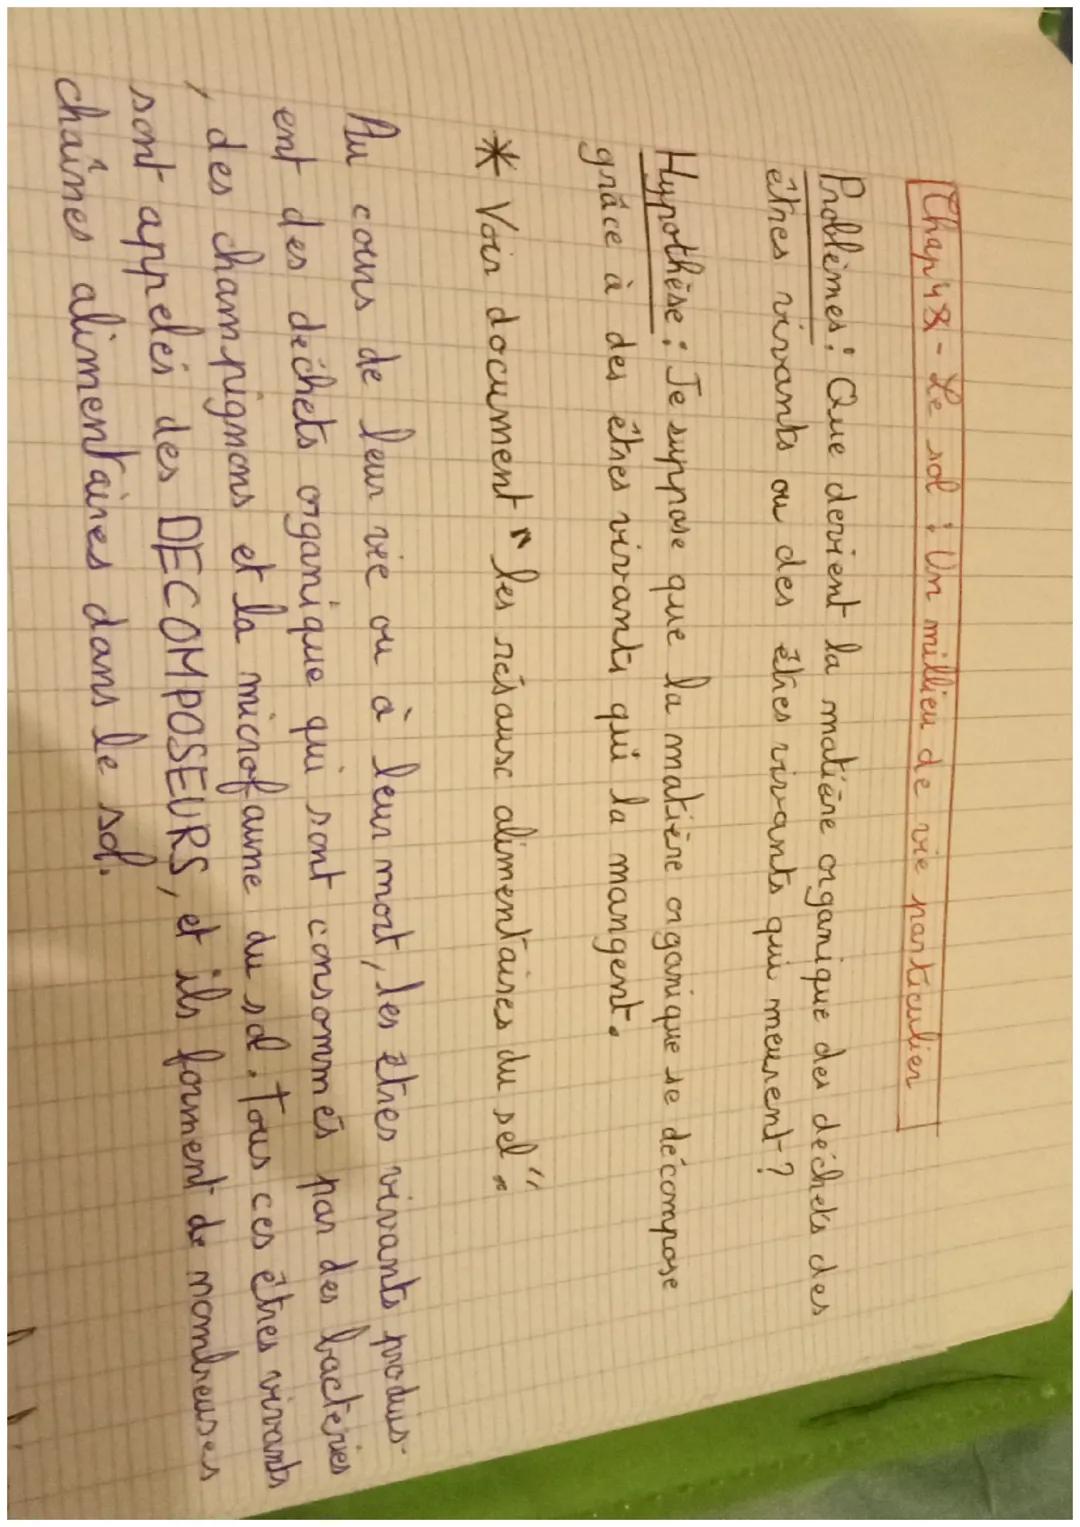 Chap 48 - Le sol : Un millieu de vie particulier
Problèmes : Que devient la matière organique des déchets des
êtres vivants ou des êtres vivants qui meurent ?
Hypothèse : Je suppose que la matière organique se décompose
grâce à des êtres vivants qui la mangent.
* Voir document " les résaux alimentaires du sol ".
Au cours de leur vie ou à leur mort, les êtres vivants produis-
ent des déchets organique qui sont consommés par des bactéries
, des champignons et la microfaune du sol. Tous ces êtres vivants
sont appelés des DECOMPOSEURS, et ils forment de nombreuses
chaînes alimentaires dans le sol.